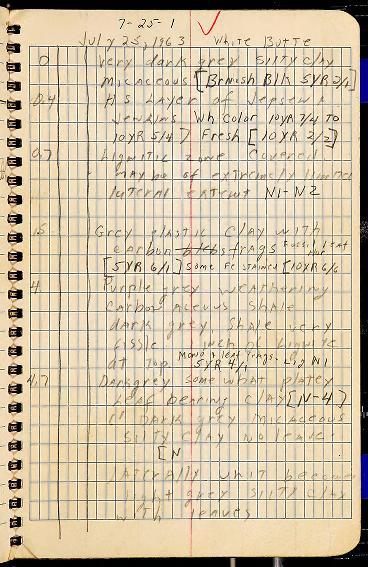 7-25-1
July 25, 1963 White Butte
0 Very dark grey silty clay
micaceous [Brnish Blk 5YR 2/1]
0.4 H S Layer of Jepsen &
Jenkins Wh color 10YR 7/4 to
10YR 5/4 Fresh [10YR 2/2]
0.7 Lignitic zone covered
may be of extremely limited
lateral extent N1-N2
Grey plastic clay with
carbon blebs frags Fossil leaf
[5YR 6/1] some Fe stained [10YR 6/6
4 Purple grey weathering
carbonaceous shale
dark grey, shale very
fissle inch of lignite
at top Mono & leaf frags. Lig N1
5YR 4/1
4.7 Dark grey some what platey
leaf bearing clay [N-4]
Dark grey micaceous
silty clay no leaves
[N
laterally unit becomes
light grey silty clay
with leaves